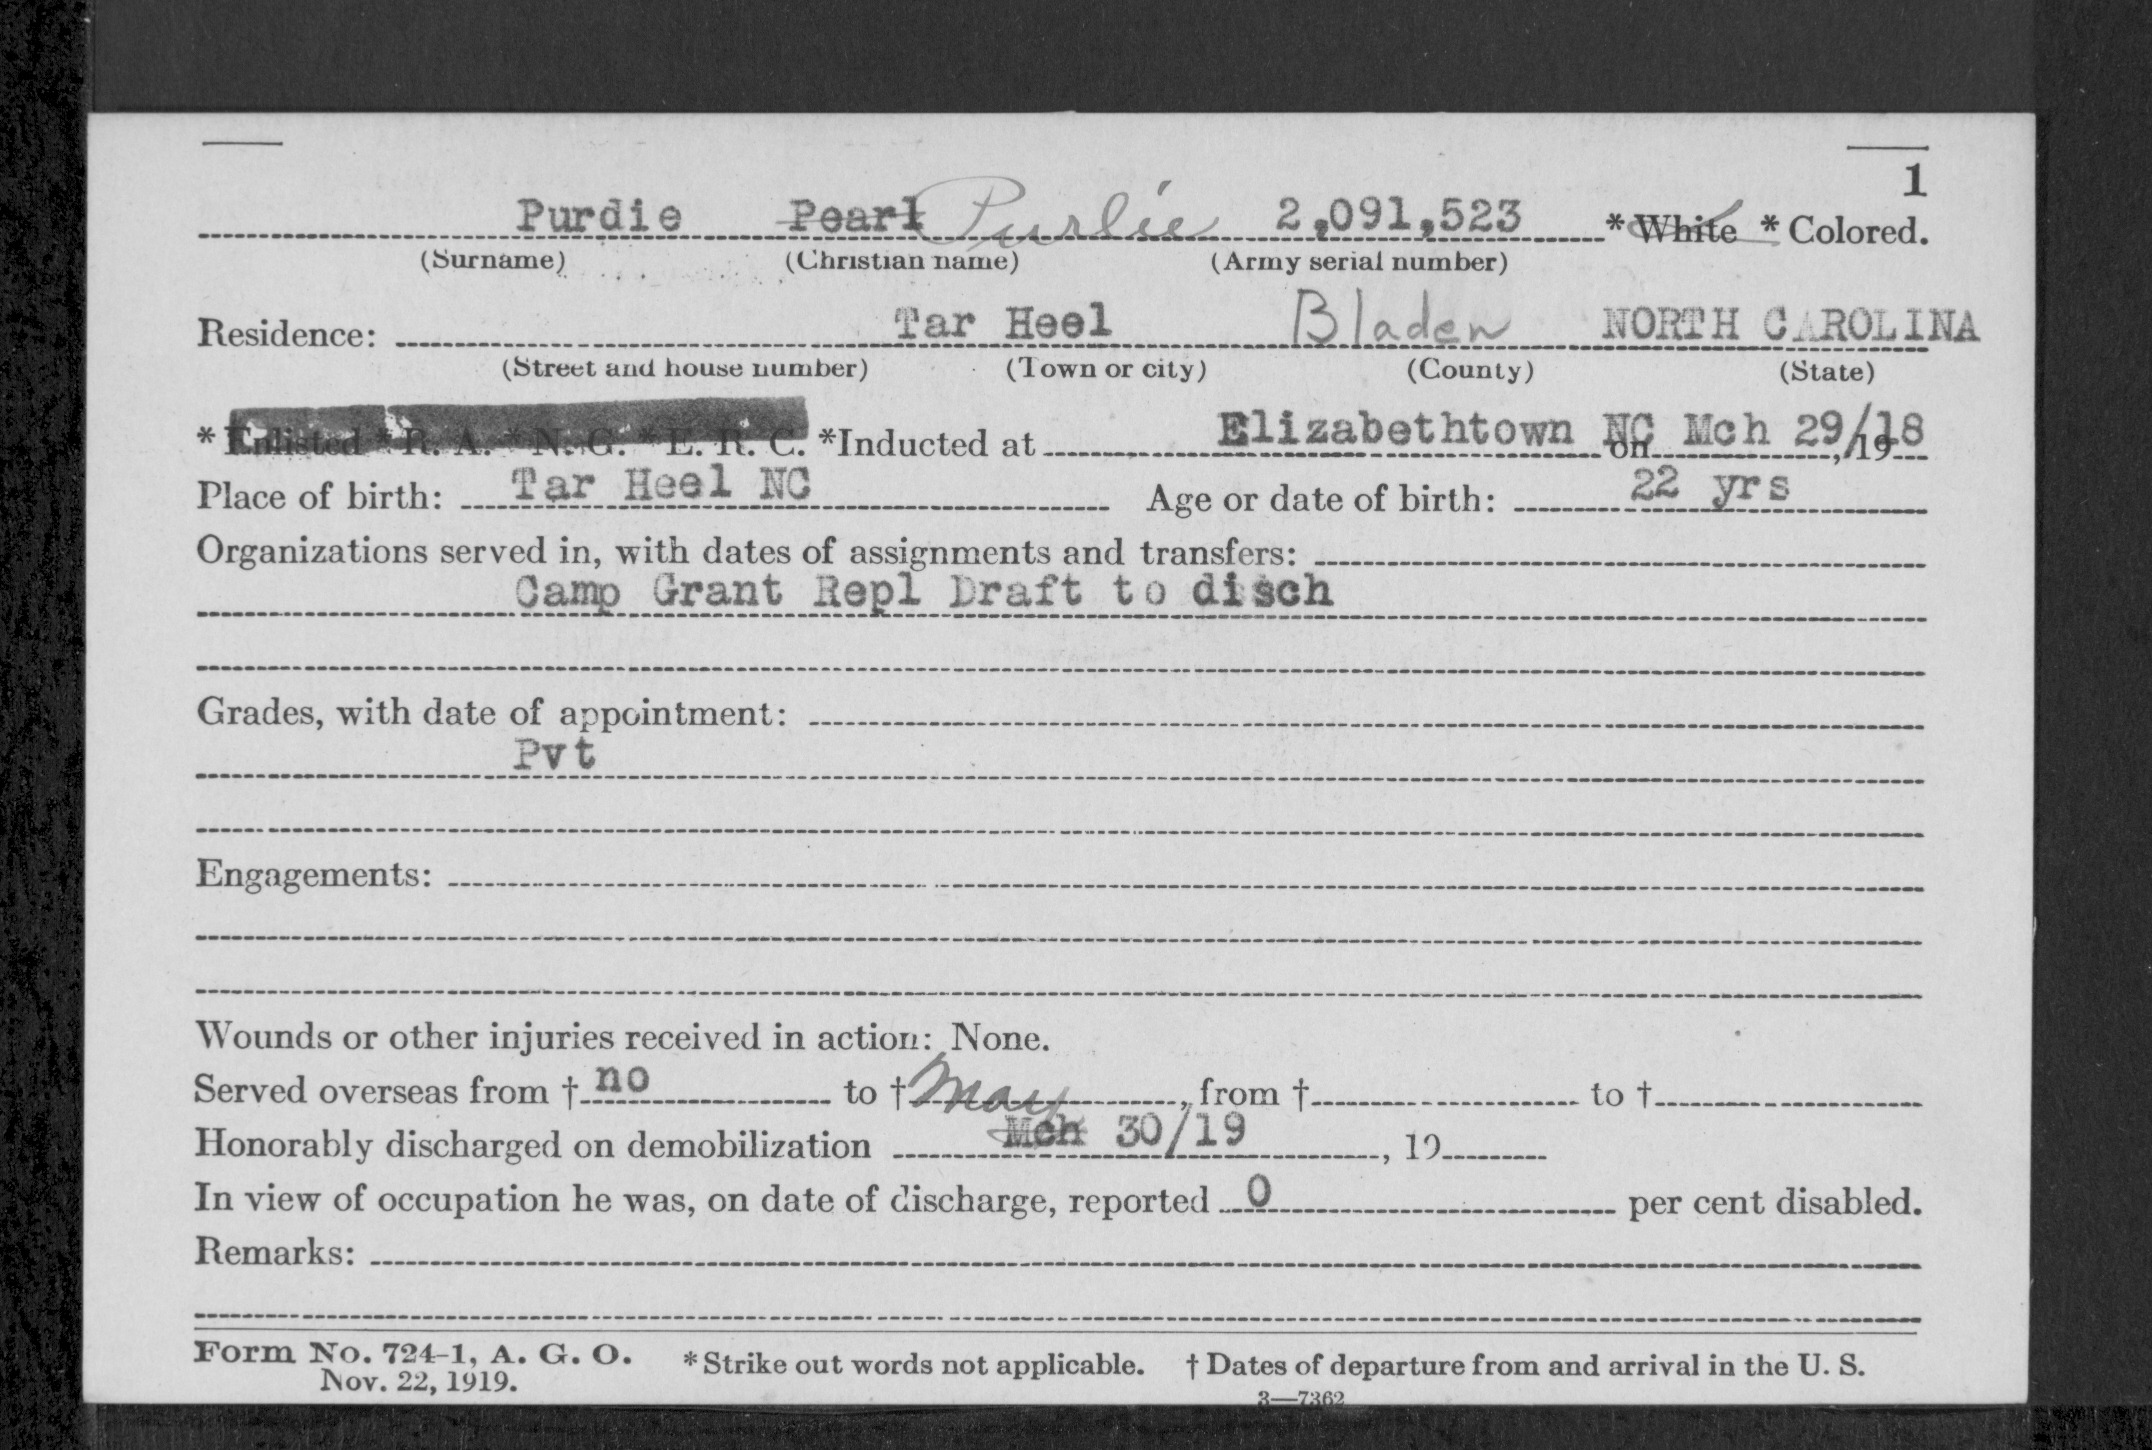 1
Purdie Pearl Purlie 2,091,523 * White * Colored.
(Surname) (Christian name) (Army serial number)
Residence: Tar Heel Bladen NORTH CAROLINA
(Street and house number) (Town or city) (County) (State)
* Enlisted * R. A. * N. G. * E. R. C. *Inducted at Elizabethtown NC on Mch 29/18, 19
Place of birth: Tar Heel NC Age or date of birth: 22 yrs
Organizations served in, with dates of assignments and transfers:
Camp Grant Repl Draft to disch
Grades, with date of appointment:
Pvt
Engagements:
Wounds or other injuries received in action: None.
Served overseas from † no to † , from † to †
May
Honorably discharged on demobilization Mch 30/19, 19
In view of occupation he was, on date of discharge, reported 0 per cent disabled.
Remarks:
Form No. 724-1, A. G. O. * Strike out words not applicable. † Dates of departure from and arrival in the U. S.
Nov. 22, 1919.
3—7362